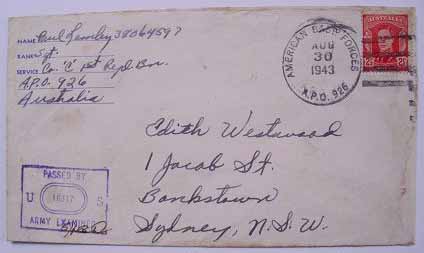 NAME Paul Lemley 38064597
RANK Sgt.
SERVICE Co. "C" 1st Repl Bn.
A.P.O. 926
Australia
AMERICAN BASE FORCES
AUG
30
1943
A.P.O. 926
AUSTRALIA
Edith Westwood
1 Jacob St.
Bankstown
Sydney, N.S.W.
PASSED BY
U S
ARMY EXAMINER